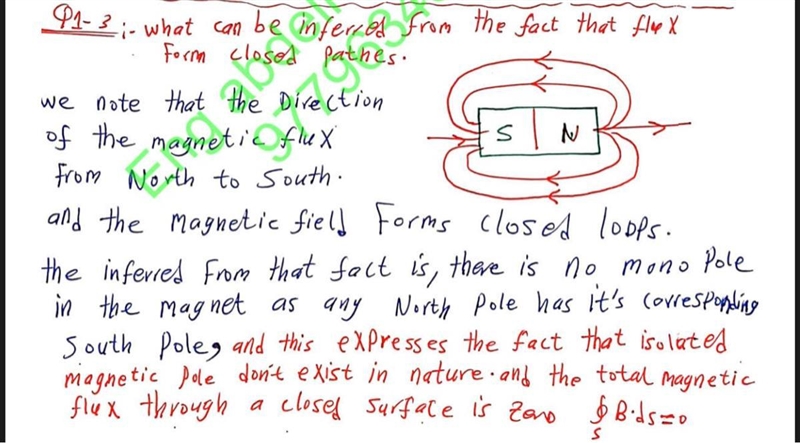 Q1-3 :- what can be inferred from the fact that flux
form closed pathes.
we note that the Direction
of the magnetic flux
from North to South.
S N
and the magnetic field Forms closed loops.
the inferred From that fact is, there is no mono Pole
in the magnet as any North Pole has it's corresponding
South Pole, and this expresses the fact that isolated
magnetic Pole don't exist in nature. and the total magnetic
flux through a closed surface is Zero ∮s B·ds=0